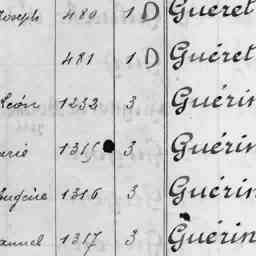 Joseph 480 1 D Guéret
481 1 D Guéret
Léon 1232 3 Guérin
1315 3 Guérin
Eugène 1316 3 Guérin
1317 3 Guérin